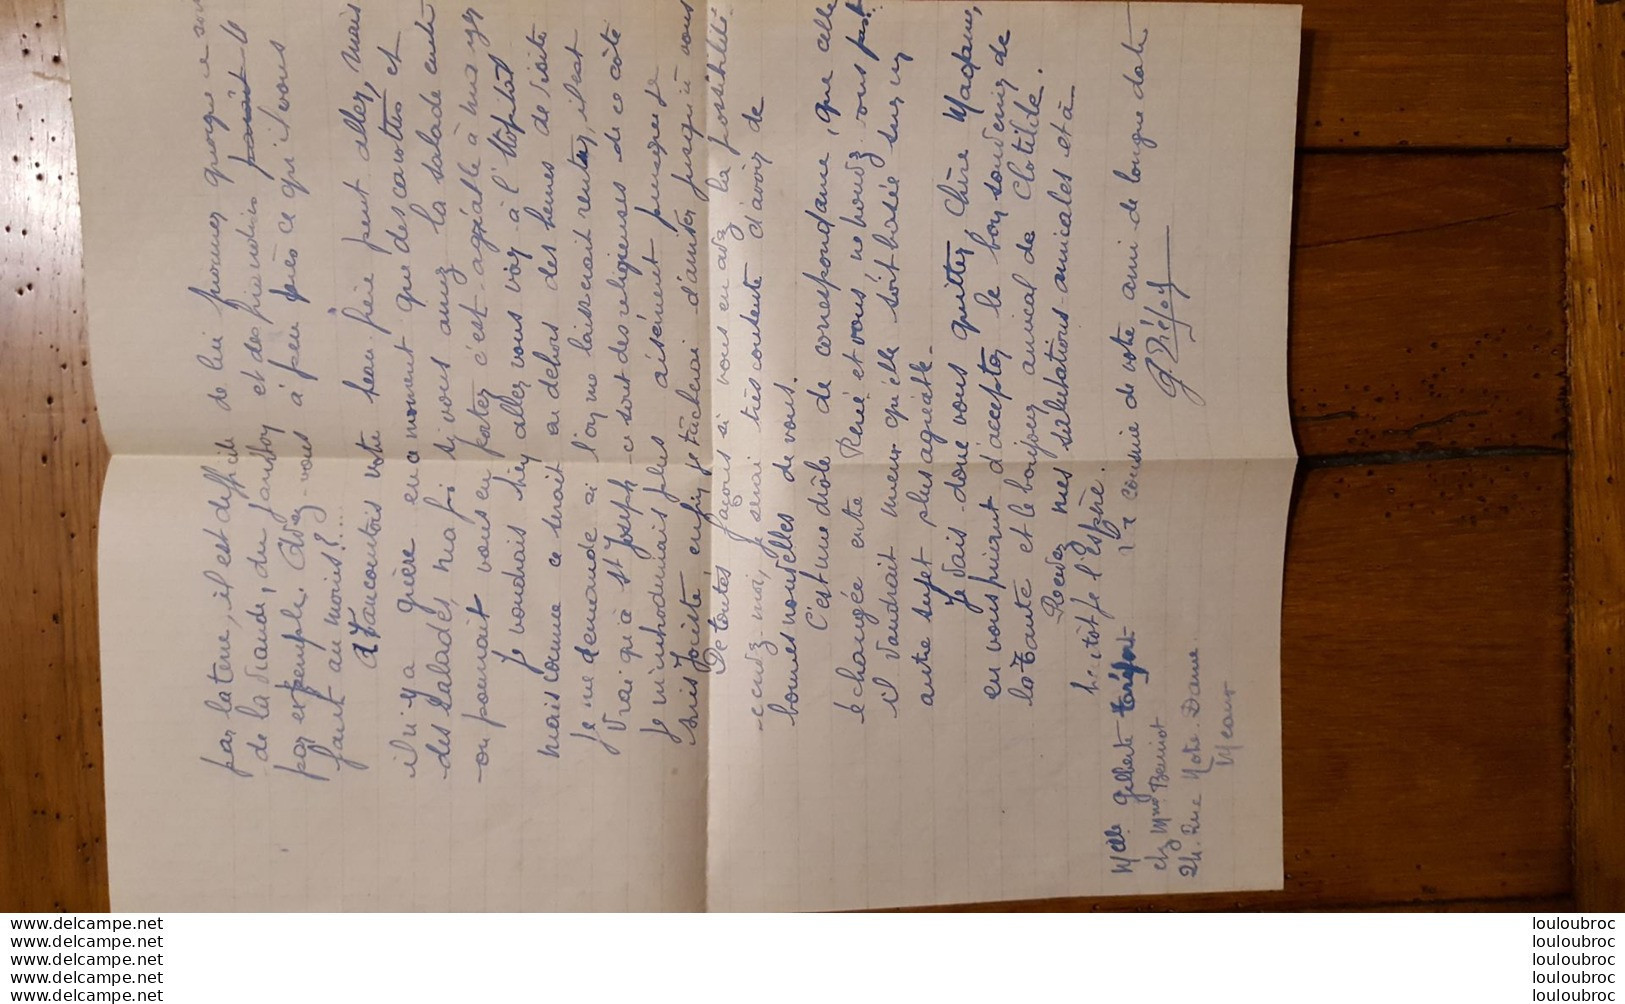 par la terre, il est difficile de lui prouver quoique ce soit
de la viande, du jambon et des friandises paraît-il
par exemple. Avez-vous à peu près ce qu'il vous
faut au moins ?....
A Vaucourtois votre beau-frère peut aller, mais
il n'y a guère en ce moment que des carottes et
des salades, ma foi si vous aimez la salade cuite
on pourrait vous en porter c'est agréable à manger
Je voudrais bien aller vous voir à l'hôpital
mais comme ce serait en dehors des heures de visite
je me demande si l'on me laisserait rentrer, il est
vrai qu'à St Joseph ce sont des religieuses de ce côté
je m'introduirais plus aisément puisque je
suis Jociste enfin je tâcherai d'arriver jusqu'à vous
De toutes façons si vous en avez la possibilité
écrivez-moi, je serai très contente d'avoir de
bonnes nouvelles de vous.
C'est une drôle de correspondance, que celle
échangée entre René et vous ne trouvez-vous pas?
il vaudrait mieux qu'elle soit basée sur un
autre sujet plus agréable.
Je vais donc vous quitter, Chère Madame,
en vous priant d'accepter le bon souvenir de
la Tante et le bonjour amical de Clotilde.
Recevez mes salutations amicales et à
bientôt je l'espère.
la cousine de votre ami de longue date
Melle Gilberte
chez Mme Benoist
24. Rue Notre-Dame
Meaux
louloubroc
louloubroc
louloubroc
louloubroc
louloubroc
www.delcampe.net
www.delcampe.net
www.delcampe.net
www.delcampe.net
www.delcampe.net